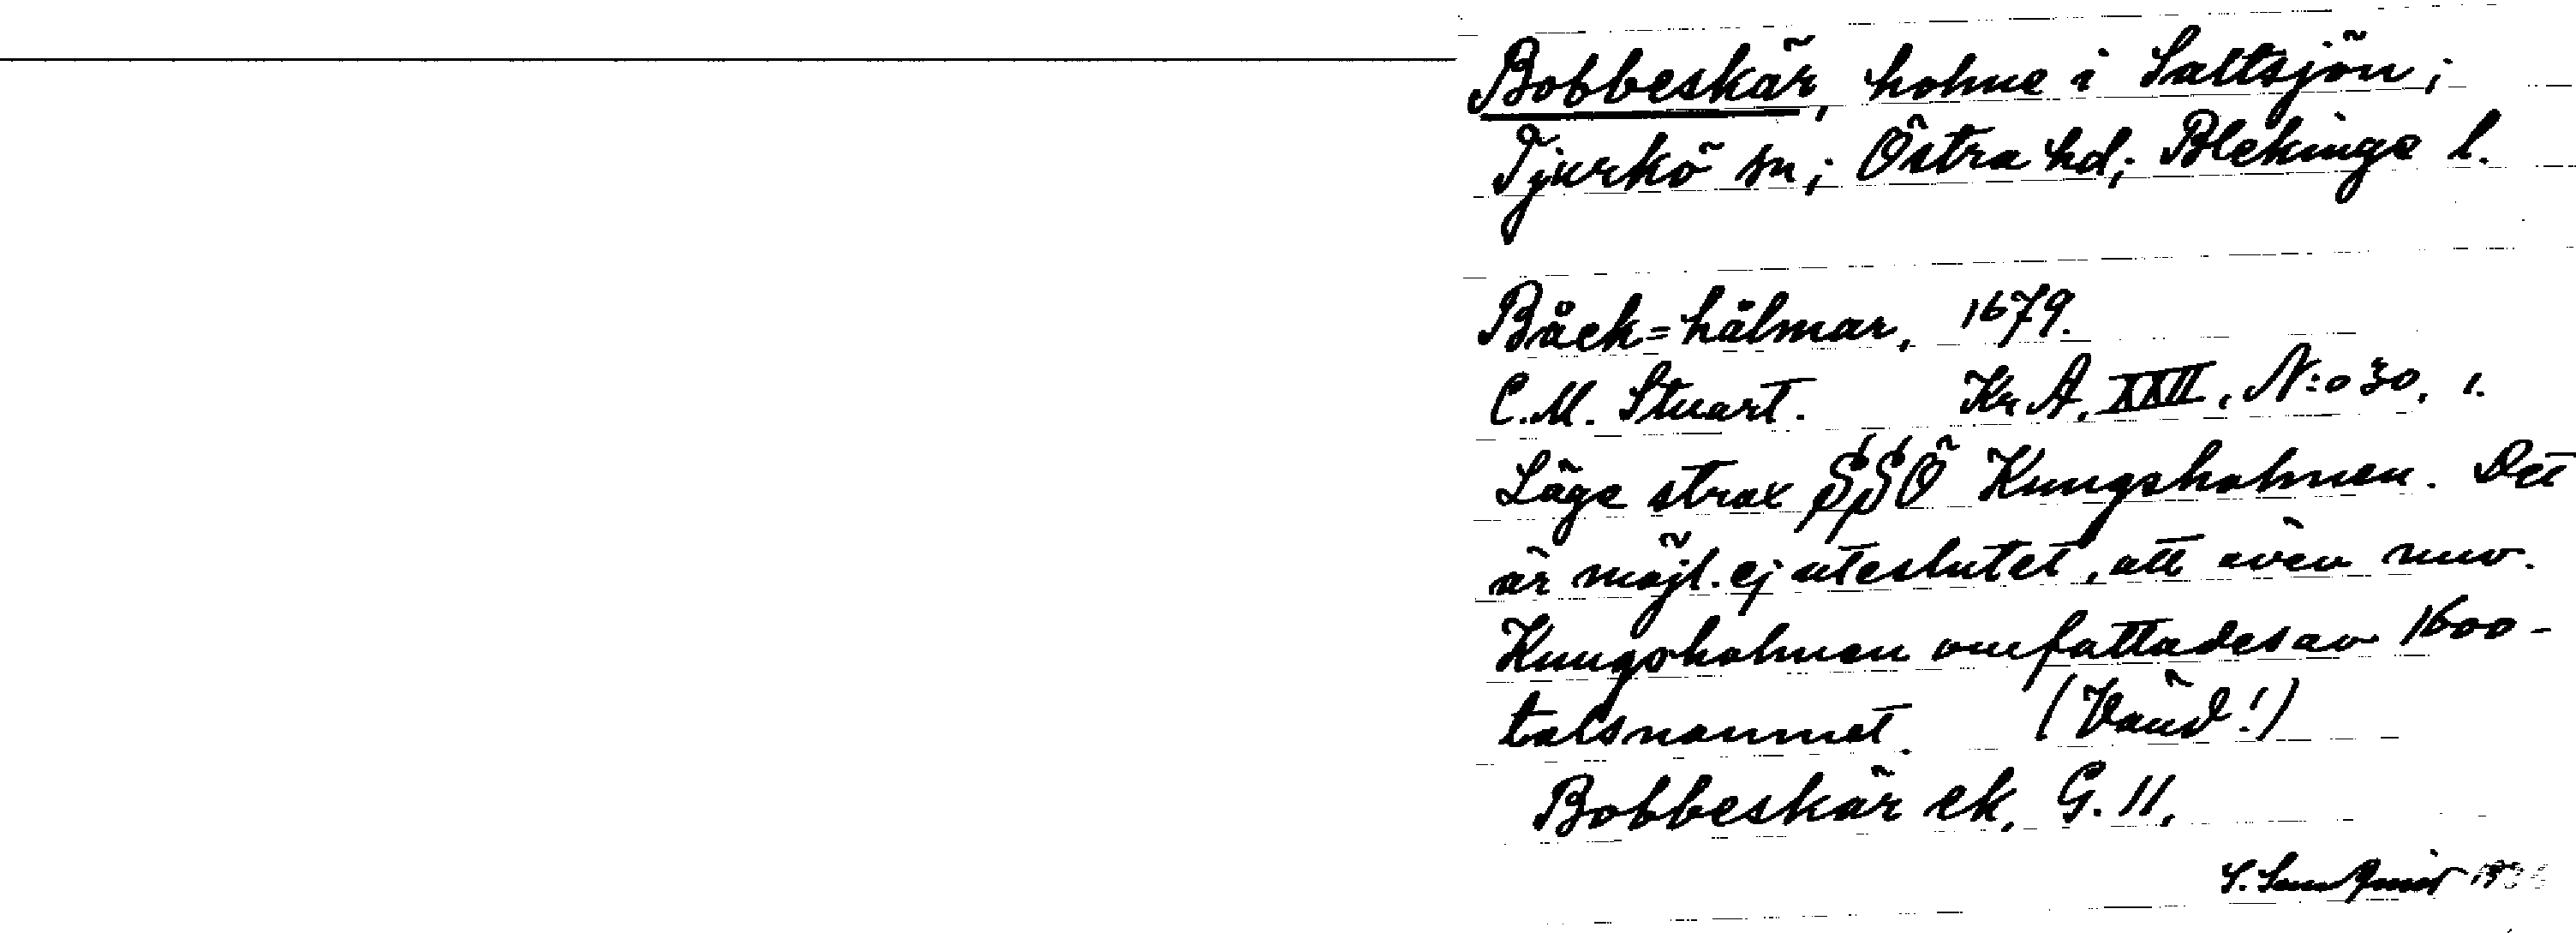 Bobbeskär, holme i Saltsjön;
Tjurkö sn; Östra hd; Blekinge l.
Båck=hålmar, 1679.
C.M. Stuart. Kr A, XXII, N:o 30, 1.
Läge strax SSÖ Kungsholmen. Det
är möjl. ej uteslutet, att även nuv.
Kungsholmen omfattades av 1600-
talsnamnet. (Vänd!)
Bobbeskär ek. G. 11.